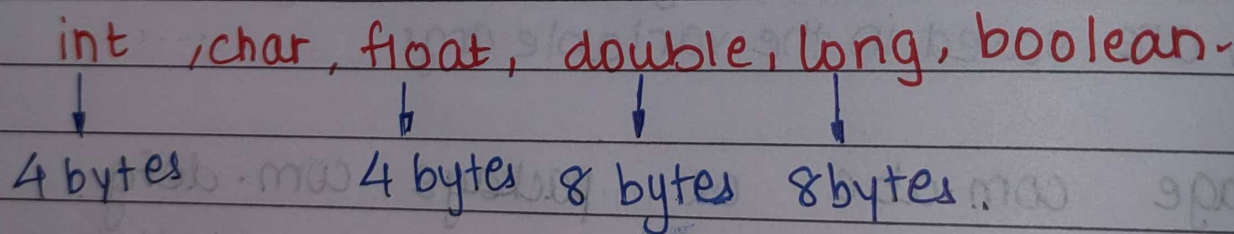 int , char, float, double, long, boolean.
4 bytes 4 bytes 8 bytes 8 bytes.